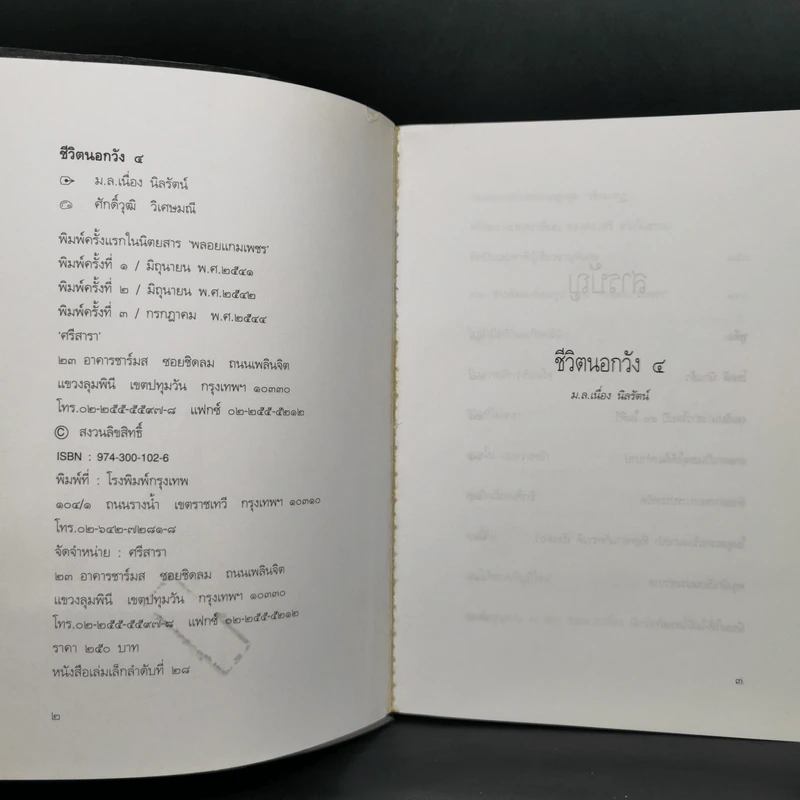 ชีวิตนอกวัง ๔
ม.ล.เนื่อง นิลรัตน์
ศักดิ์วุฒิ วิเศษมณี
พิมพ์ครั้งแรกในนิตยสาร 'พลอยแกมเพชร'
พิมพ์ครั้งที่ ๑ / มิถุนายน พ.ศ.๒๕๔๑
พิมพ์ครั้งที่ ๒ / มิถุนายน พ.ศ.๒๕๔๒
พิมพ์ครั้งที่ ๓ / กรกฎาคม พ.ศ.๒๕๔๔
'ศรีสารา'
๒๓ อาคารชาร์มส ซอยชิดลม ถนนเพลินจิต
แขวงลุมพินี เขตปทุมวัน กรุงเทพฯ ๑๐๓๓๐
โทร.๐๒-๒๕๕-๕๕๙๗-๘ แฟกซ์ ๐๒-๒๕๕-๕๒๑๒
© สงวนลิขสิทธิ์
ISBN : 974-300-102-6
พิมพ์ที่ : โรงพิมพ์กรุงเทพ
๑๐๔/๑ ถนนรางน้ำ เขตราชเทวี กรุงเทพฯ ๑๐๓๑๐
โทร.๐๒-๖๔๒-๗๒๘๑-๘
จัดจำหน่าย : ศรีสารา
๒๓ อาคารชาร์มส ซอยชิดลม ถนนเพลินจิต
แขวงลุมพินี เขตปทุมวัน กรุงเทพฯ ๑๐๓๓๐
โทร.๐๒-๒๕๕-๕๕๙๗-๘ แฟกซ์ ๐๒-๒๕๕-๕๒๑๒
ราคา ๒๕๐ บาท
หนังสือเล่มเล็กลำดับที่ ๒๘
๒
สารบัญ
ชีวิตนอกวัง ๔
ม.ล.เนื่อง นิลรัตน์
๓